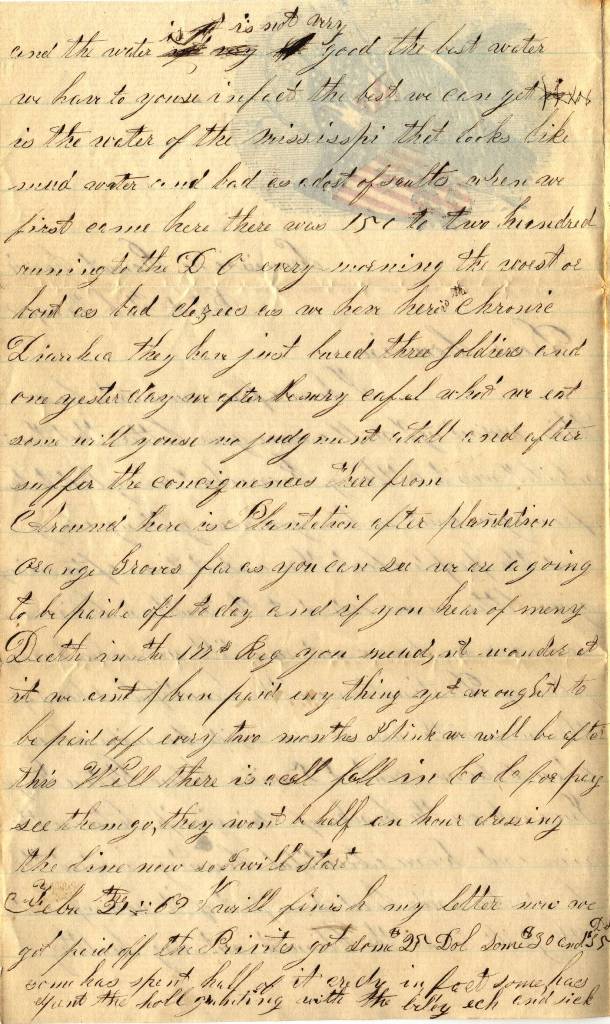 is is not very
and the water good the best water
we have to youse infact the best we can get
is the water of the mississpi that looks like
mud water and bad as a dost of saults when we
first came here there was 150 to two hundred
runing to the D C every morning the worst or
bout as bad as we have here is the Chronic
Diarrhea they have just bured three Soldiers and
one yesterday we after be very cafel what we eat
some will youse no judgment atall and after
suffer the conciquences there from
Around here is Plantation after plantation
orange Groves far as you can see we are a going
to be paide off to day and if you hear of meny
Death in the Reg you need,nt wonder at
it we aint been paid any thing yet we ought to
be paid off every two months I think we will be after
this Well there is a call fall in Co for pay
see them go, they wont be half an hour dressing
the line now so I will start
Febu I will finish my letter now we
got paid off the Privits got some $25 Dol some $30 and 35
some has spent half of it aredy in fact some has
spent the holl with the and sick